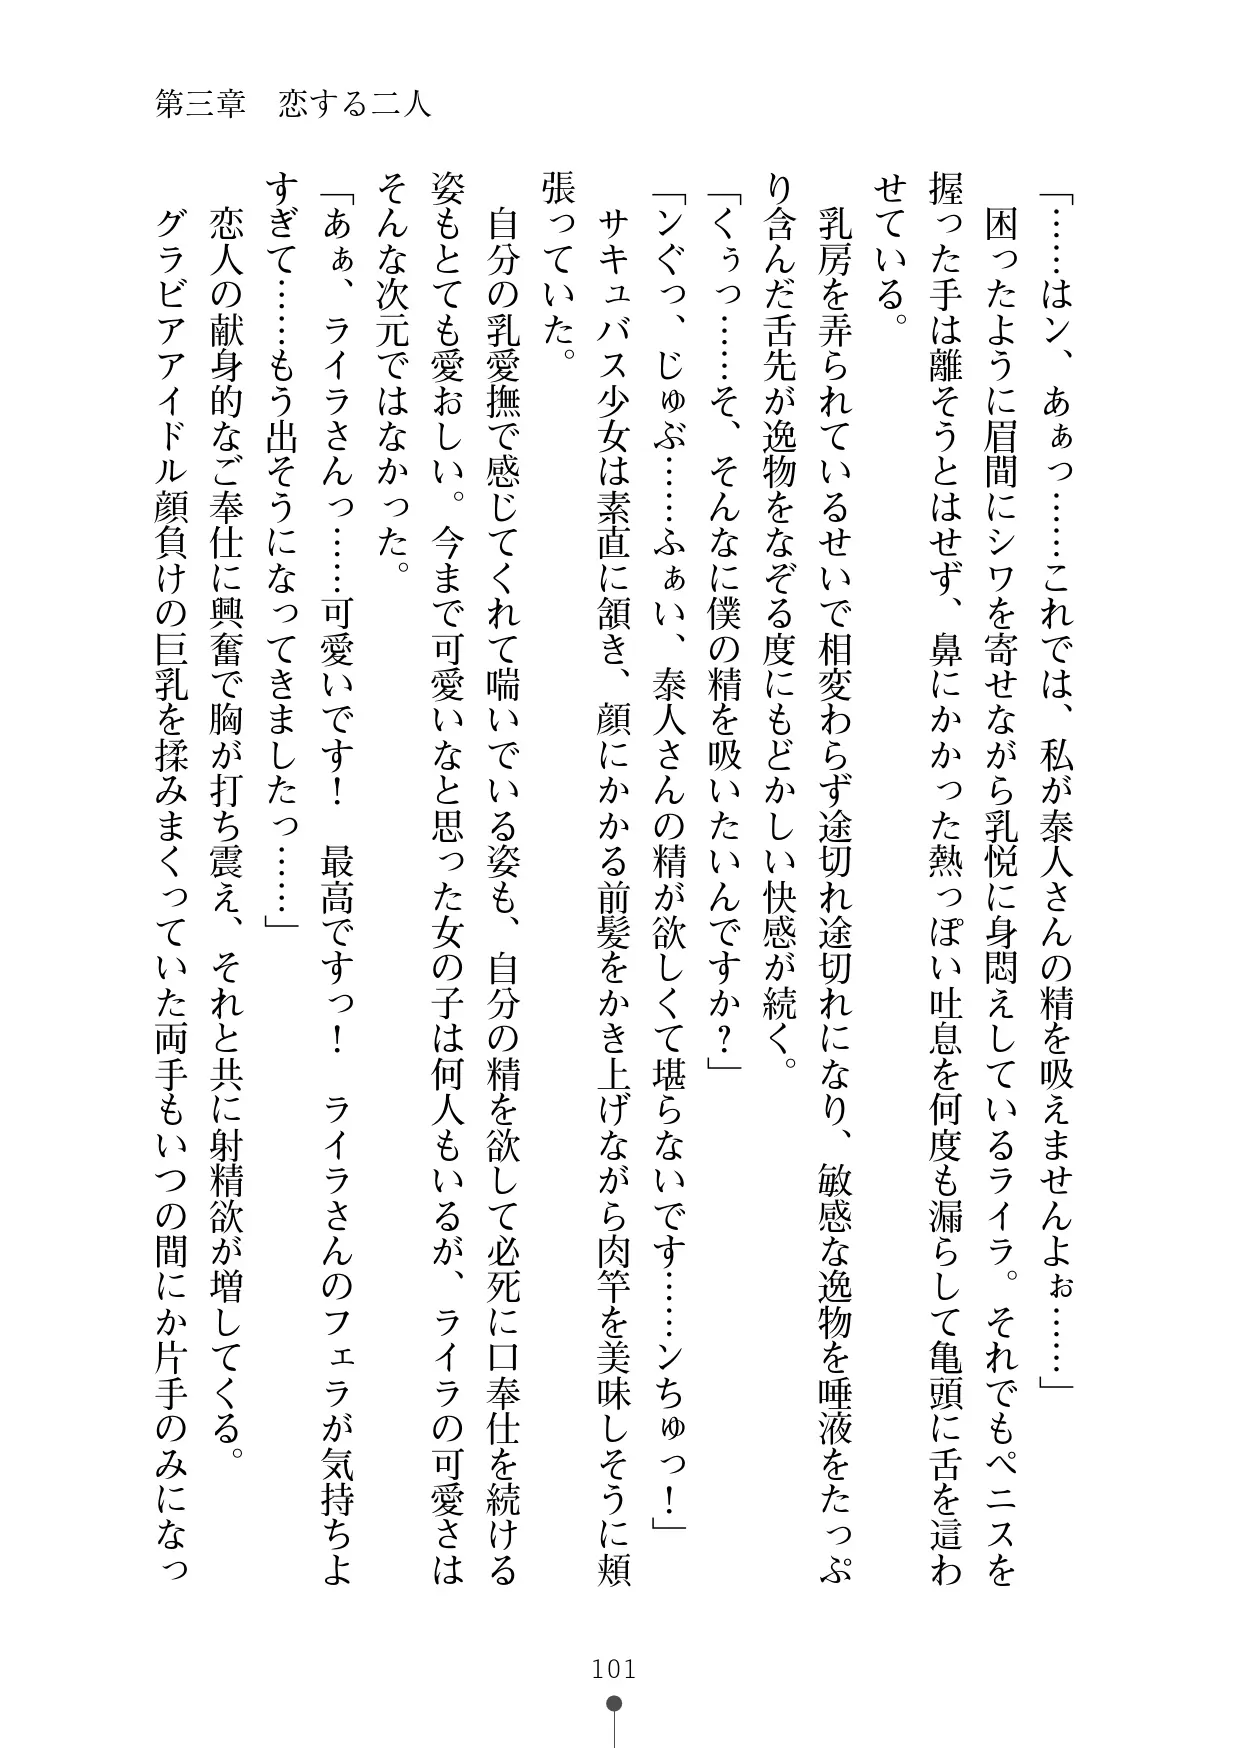 第三章　恋する二人
「……はン、あぁっ……これでは、私が泰人さんの精を吸えませんよぉ……」
　困ったように眉間にシワを寄せながら乳悦に身悶えしているライラ。それでもペニスを
握った手は離そうとはせず、鼻にかかった熱っぽい吐息を何度も漏らして亀頭に舌を這わ
せている。
　乳房を弄られているせいで相変わらず途切れ途切れになり、敏感な逸物を唾液をたっぷ
り含んだ舌先が逸物をなぞる度にもどかしい快感が続く。
「くぅっ……そ、そんなに僕の精を吸いたいんですか？」
「ンぐっ、じゅぶ……ふぁい、泰人さんの精が欲しくて堪らないです……ンちゅっ！」
　サキュバス少女は素直に頷き、顔にかかる前髪をかき上げながら肉竿を美味しそうに頬
張っていた。
　自分の乳愛撫で感じてくれて喘いでいる姿も、自分の精を欲して必死に口奉仕を続ける
姿もとても愛おしい。今まで可愛いなと思った女の子は何人もいるが、ライラの可愛さは
そんな次元ではなかった。
「あぁ、ライラさんっ……可愛いです！　最高ですっ！　ライラさんのフェラが気持ちよ
すぎて……もう出そうになってきましたっ……」
　恋人の献身的なご奉仕に興奮で胸が打ち震え、それと共に射精欲が増してくる。
　グラビアアイドル顔負けの巨乳を揉みまくっていた両手もいつの間にか片手のみになっ
101